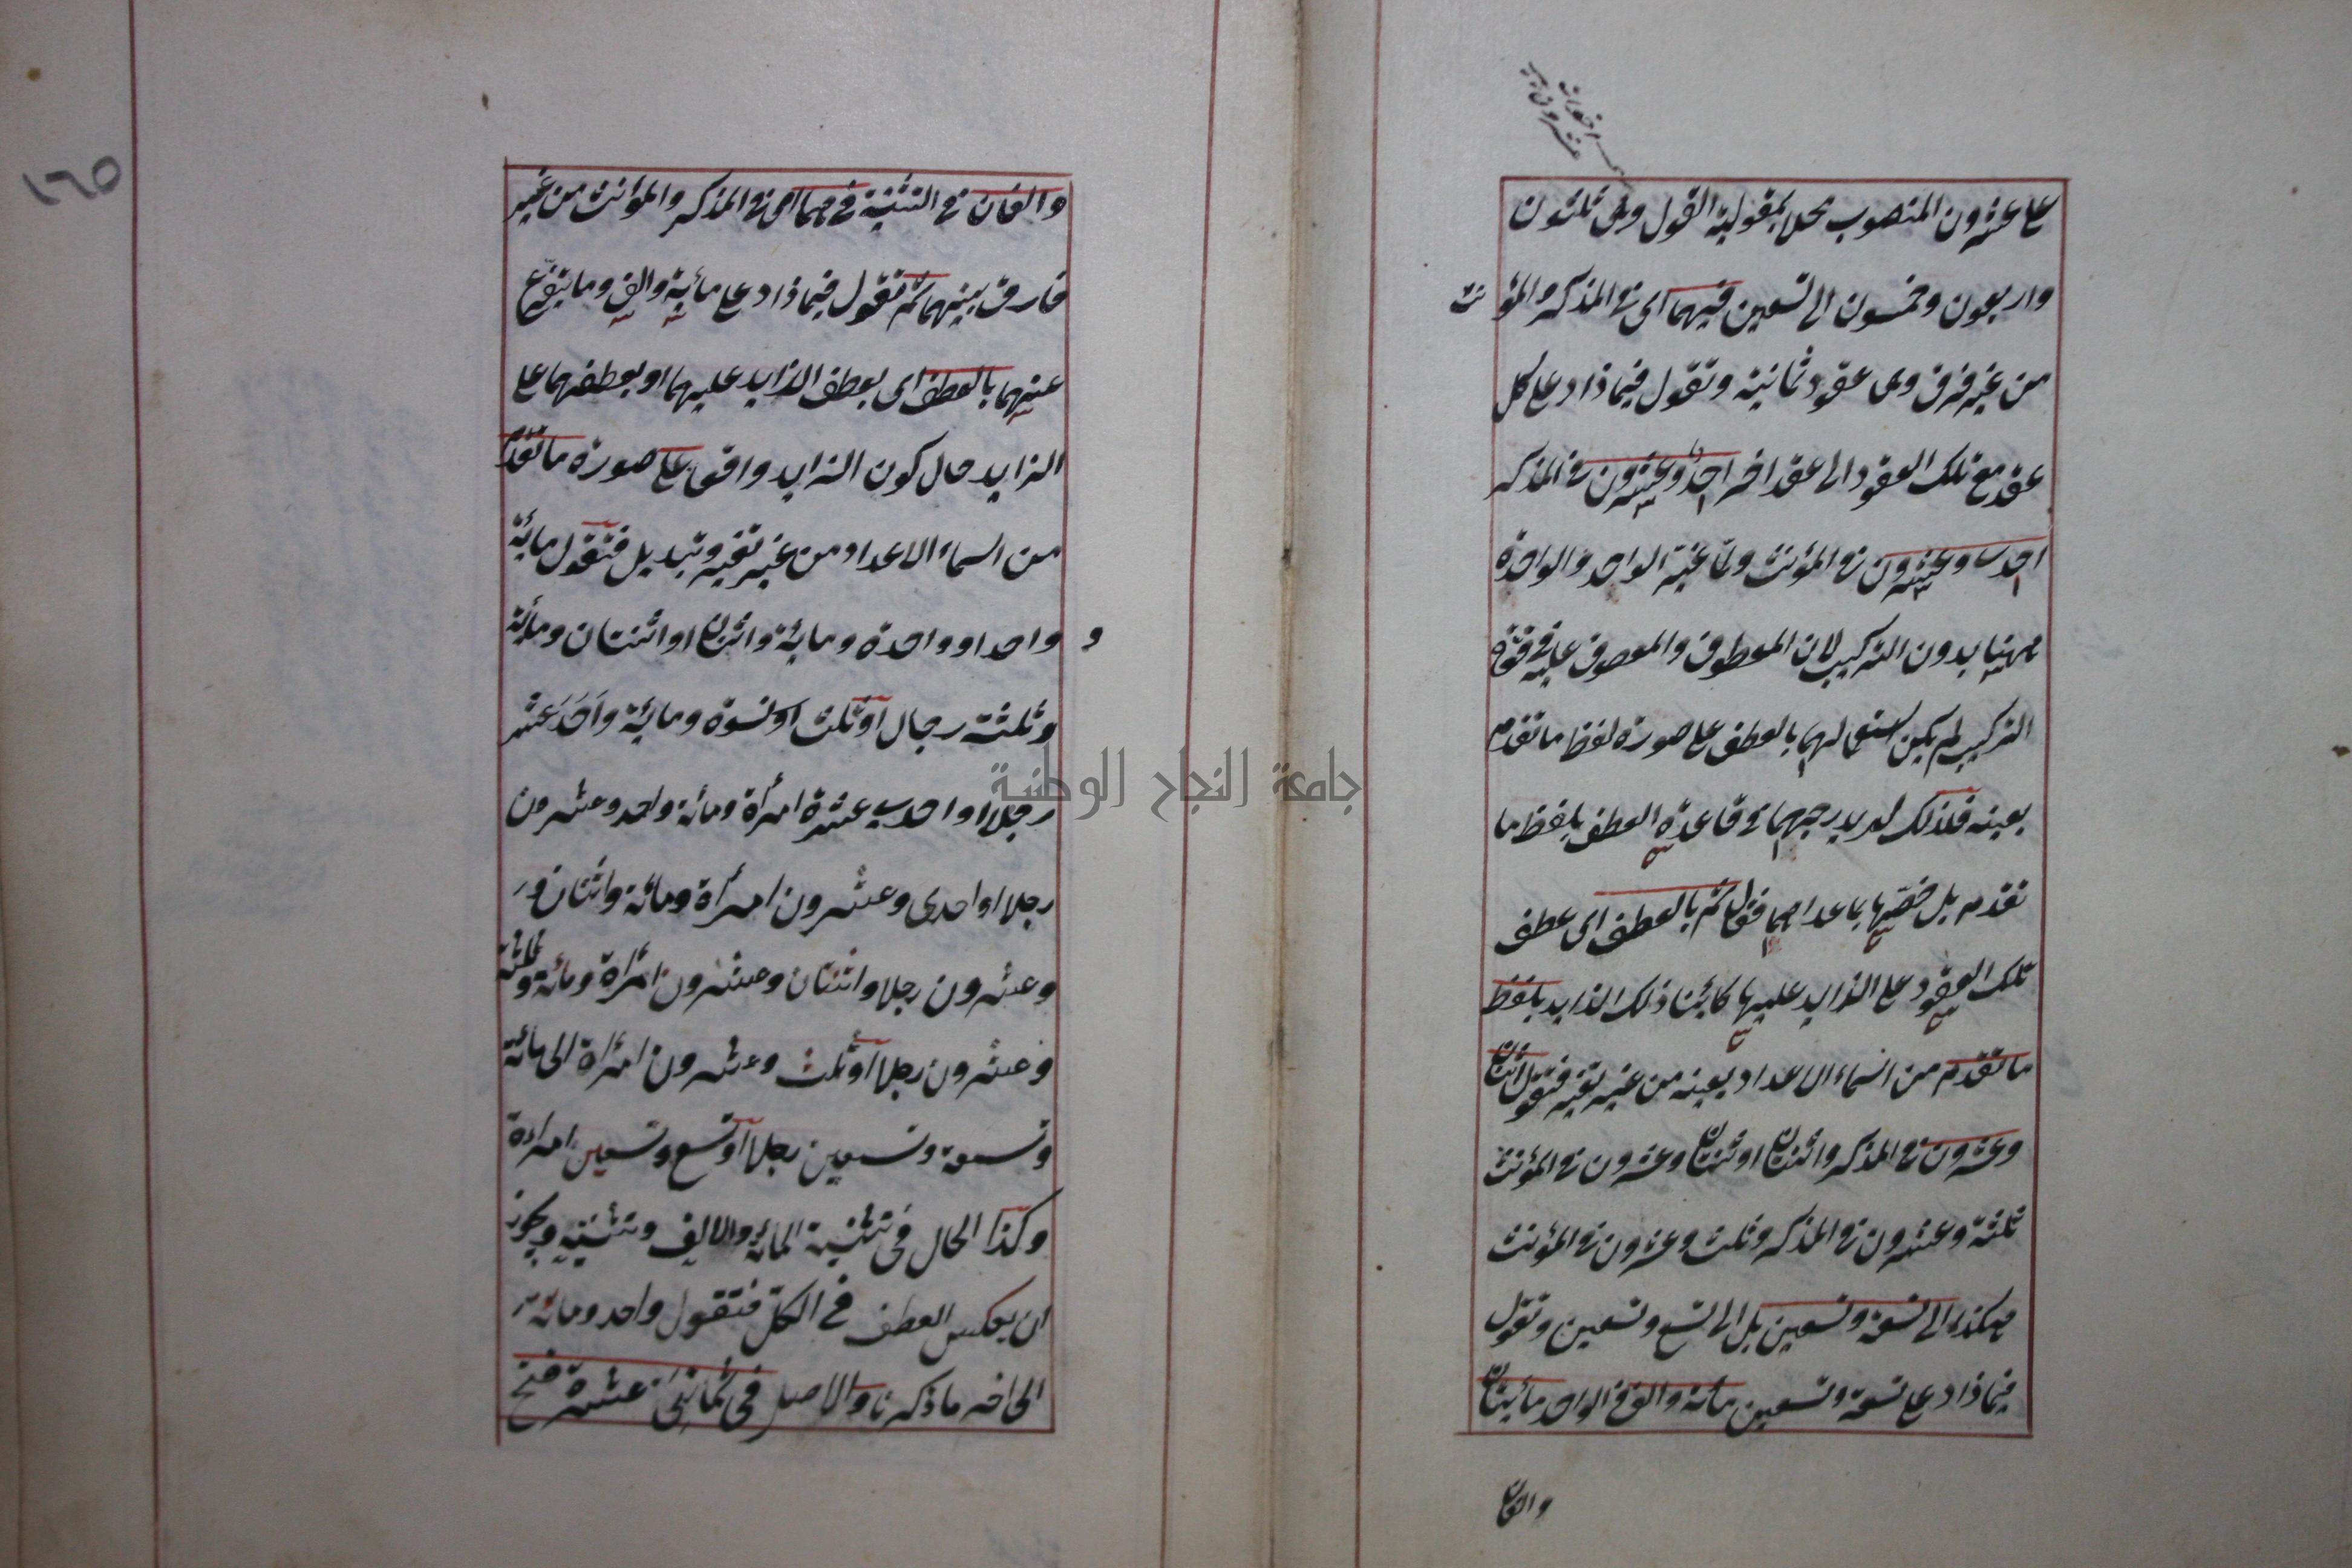 على عشرون المنصوب محلا بمقولية القول وهى ثلثون
واربعون وخمسون الى تسعين فيهما اى فى المذكر والمؤنث
من غير فرق وهى عقود ثمانية وتقول فيما زاد على كل
عقد مع تلك العقود الى عقد اخر احد وعشرون فى المذكر
احدى وعشرون فى المؤنث ولما غير الواحد والواحدة
ههنا بدون التركيب لان المعطوف والمعطوف عليه فى قوة
التركيب لم يكن استعمالهما بالعطف على صورة لفظ ما تقدم
بعينه فلذلك لم يدرجهما فى قاعدة العطف بلفظ ما
تقدم بل خصها بما عداهما فقال ثم بالعطف اى عطف
تلك العقود على الزايد عليها كائنا ذلك الزايد بلفظ
ما تقدم من اسماء الاعداد بعينه من غير تغير فتقول اثنان
وعشرون فى المذكر واثنتان او ثنتان وعشرون فى المؤنث
ثلثة وعشرون فى المذكر وثلث وعشرون فى المؤنث
هكذا الى تسعة وتسعين بل الى تسع وتسعين وتقول
فيما زاد على تسعة وتسعين مائة والف فى الواحد مائتان
والفان
والفان فى التثنية فيهما اى فى المذكر والمؤنث من غير
فارق بينهما ثم تقول فيما زاد على مائة والف وما يتفرع
عنهما بالعطف اى بعطف الزايد عليهما او بعطفهما على
الزايد حال كون الزايد واقعا على صورة ما تقدم
من اسماء الاعداد من غير تغير وتبديل فتقول مائة
و واحد او واحدة ومائة واثنان او اثنتان ومائة
وثلثة رجال او ثلث نسوة ومائة واحَدَ عشر
رجلا او احدى عشرة امرأة ومائة واحد وعشرون
رجلا او احدى وعشرون امرأة ومائة واثنان
وعشرون رجلا واثنتان وعشرون امرأة ومائة وثلثة
وعشرون رجلا او ثلث وعشرون امرأة الى مائة
وتسعة وتسعين رجلا او تسع وتسعين امراءة
وكذا الحال فى تثنية المائة والالف وتثنيته ويجوز
ان يعكس العطف فى الكل فتقول واحد ومائة
الى اخر ما ذكرنا والاصل فى ثمانى عشرة فتح
١٦٥
جامعة النجاح الوطنية